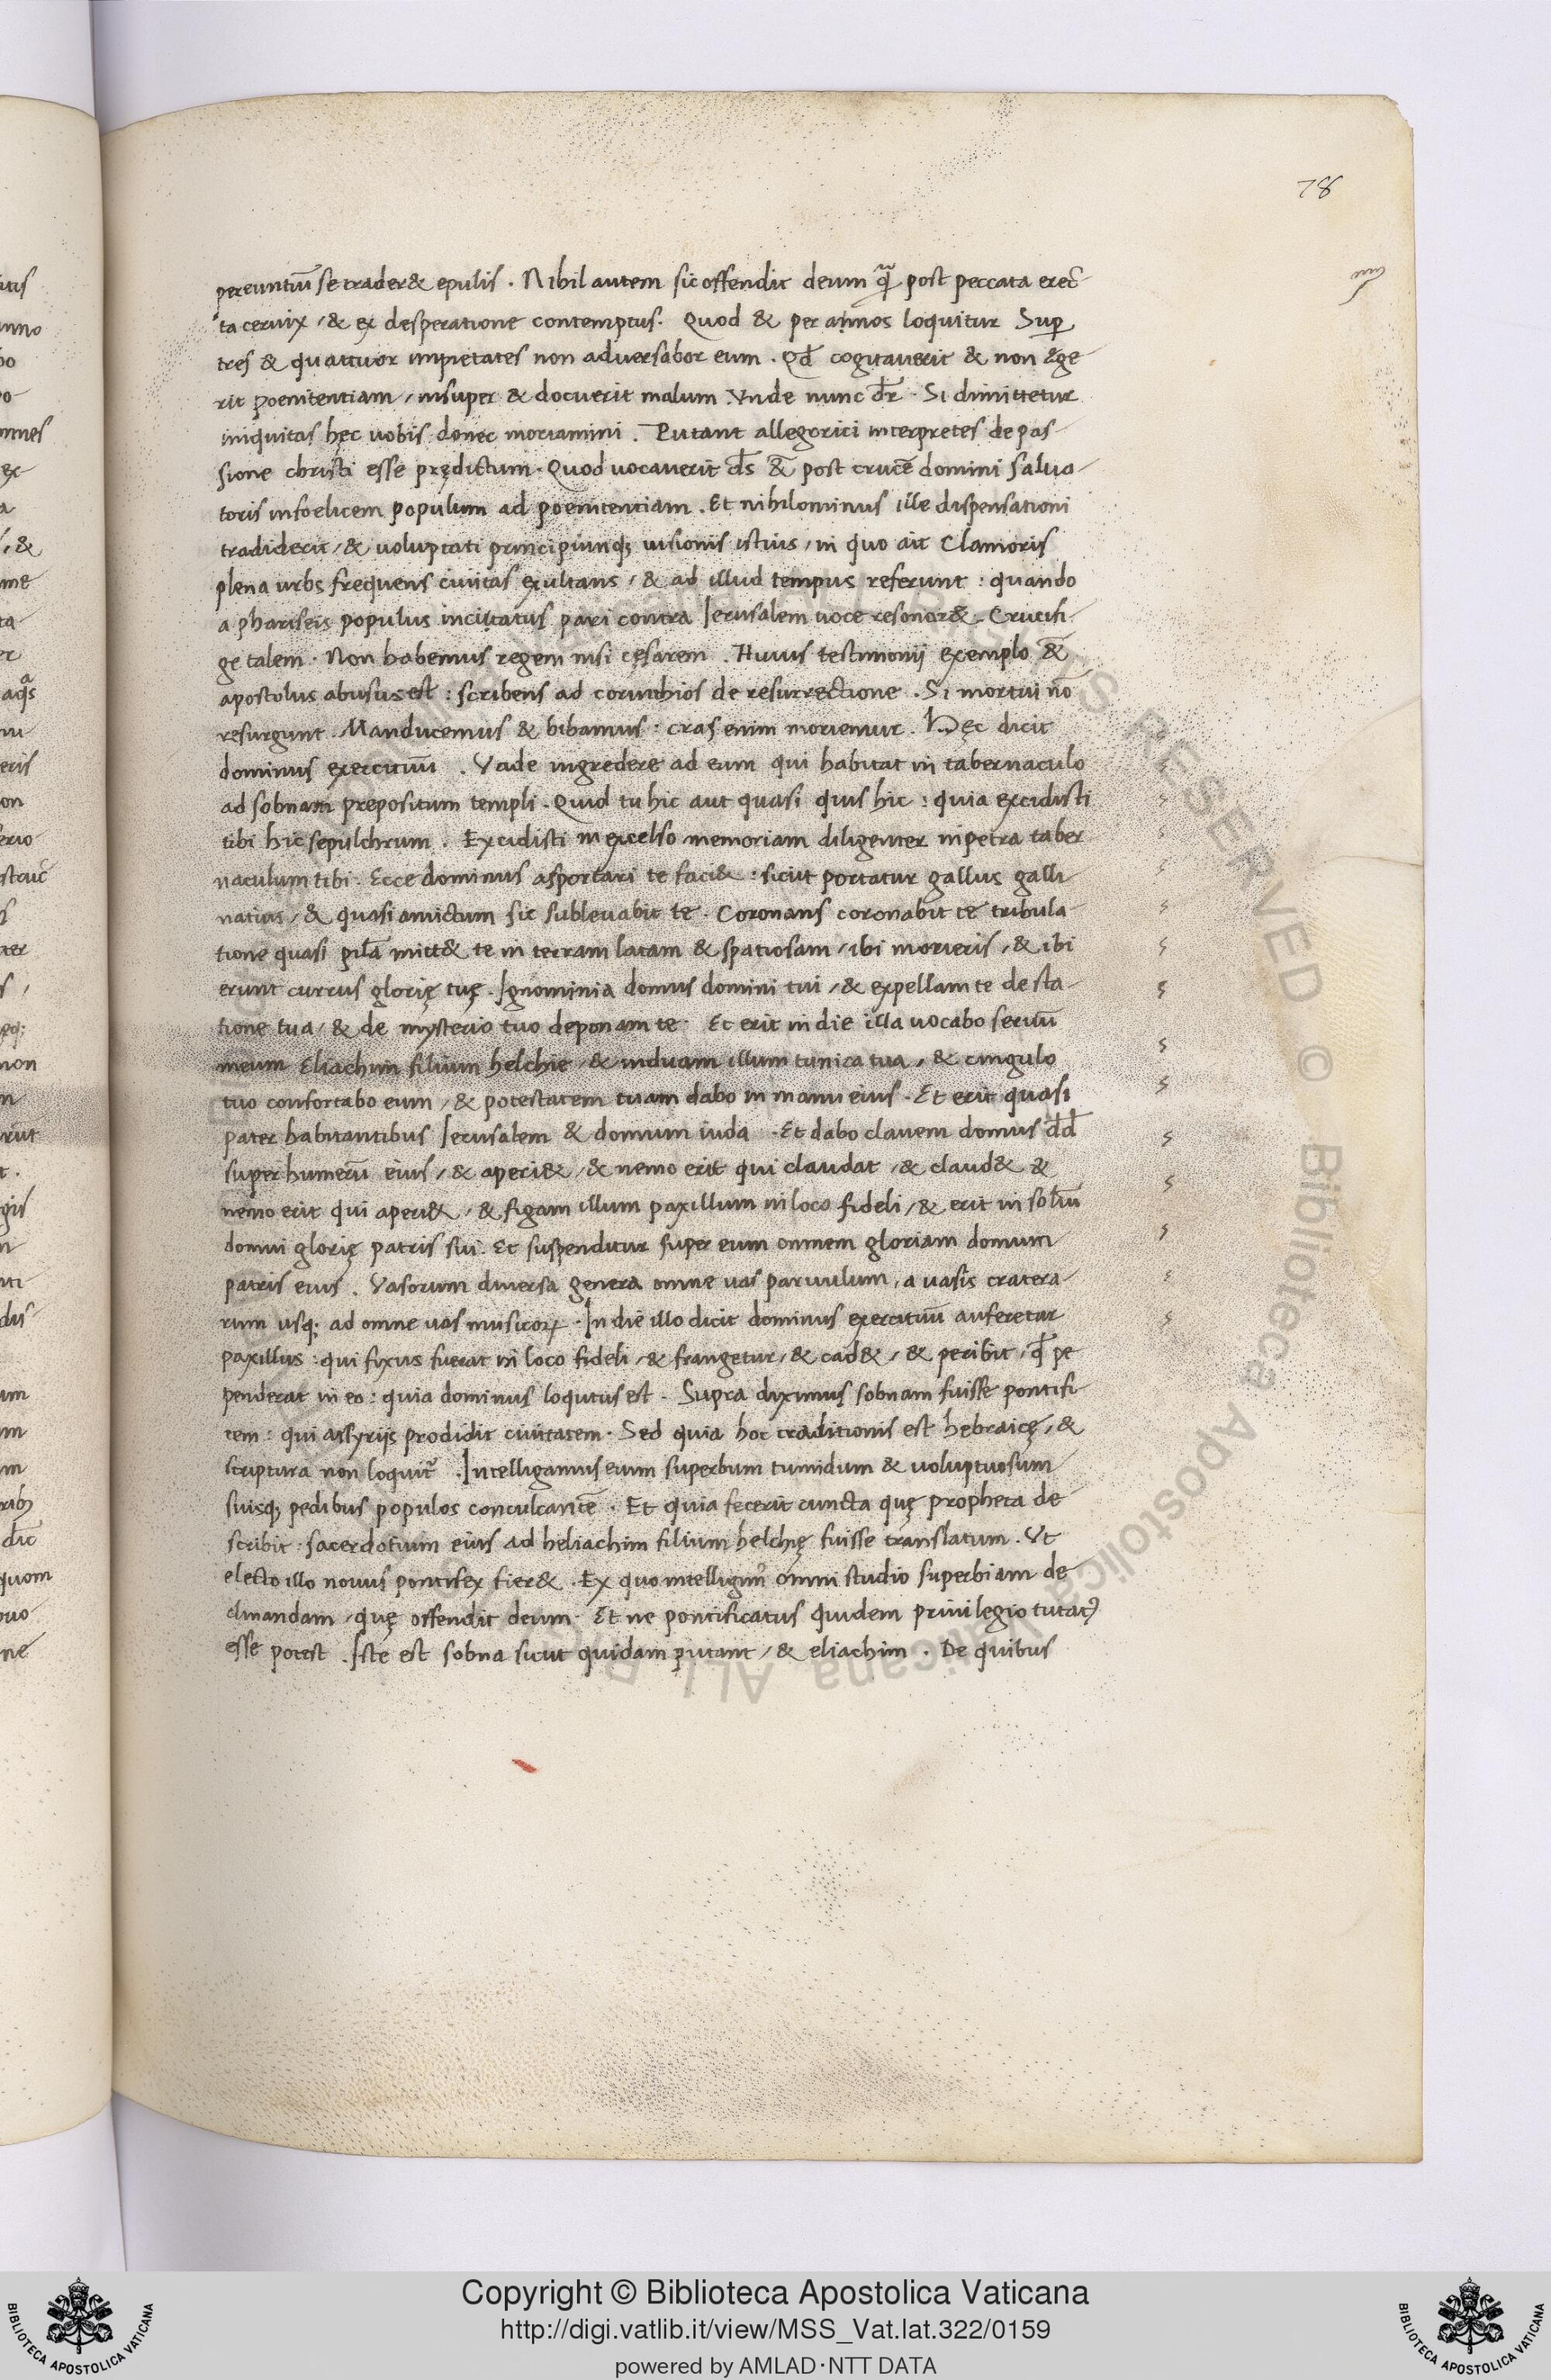 78
pereuntiū se trader& epulis . Nihil autem sic offendit deum q̄ post peccata erec̄
ta ceruix / & ex desperatione contemptus . Quod & per annos loquitur Suꝑ
tres & quattuor impietates non aduersabor eum . Qd̄ cogitauerit & non ęge
rit poenitentiam / insuper & docuerit malum . Vnde nunc dr̄ . Si dimittetur
iniquitas hęc uobis donec moriamini . Putant allegorici interpretes de pas
sione christi esse prędictum . Quod uocauerit ds̄ &̄ post crucē domini salua
toris infoelicem populum ad poenitentiam . Et nihilominus ille dispensationi
tradiderit / & uoluptati principiumq; uisionis istius / in quo ait Clamoris
plena urbs frequens ciuitas exultans / & ad illud tempus referunt : quando
a phariseis populus incitatus pari contra Ierusalem uoce resonar& . Crucifi
ge talem . Non habemus regem nisi cęsarem . Huius testimonij exemplo &̄
apostolus abusus est : scribens ad corinthios de resurrectione . Si mortui nō
resurgunt . Manducemus & bibamus : cras enim moriemur . Hęc dicit
dominus exercituū . Vade ingredere ad eum qui habitat in tabernaculo
ad sobnam prepositum templi . Quid tu hic aut quasi quis hic : quia excidisti
tibi hic sepulchrum . Excidisti in excelso memoriam diligenter in petra taber
naculum tibi . Ecce dominus asportari te faci& : sicut portatur gallus galli
natius / & quasi amictum sic subleuabit te . Coronans coronabit te tribula
tione quasi pilā mitt& te in terram latam & spatiosam / ibi morieris / & ibi
erunt currus glorię tuę . Ignominia domus domini tui / & expellam te de sta
tione tua / & de mysterio tuo deponam te . Et erit in die illa uocabo seruū
meum Eliachim filium helchie / & induam illum tunica tua / & cingulo
tuo confortabo eum / & potestatem tuam dabo in manu eius . Et erit quasi
pater habitantibus Ierusalem & domum iuda . Et dabo clauem domus dd̄
super humerū eius / & aperi& / & nemo erit qui claudat / & claud& &
nemo erit qui aperi& / & figam illum paxillum in loco fideli / & erit in soliū
domui glorię patris sui . Et suspenditur super eum omnem gloriam domum
patris eius . Vasorum diuersa genera omne uas paruulum / a uasis cratera
rum usq; ad omne uas musicoꝝ . In die illo dicit dominus exercituū auferetur
paxillus : qui fixus fuerat in loco fideli / & frangetur / & cad& / & peribit / qd̄ pe
penderat in eo : quia dominus loqutus est . Supra diximus sobnam fuisse pontifi
cem : qui assyrijs prodidit ciuitatem . Sed quia hoc traditionis est hebraicę / &
scriptura non loquit᷑ . Intelligamus eum superbum tumidum & uoluptuosum
suisq; pedibus populos conculcantē . Et quia fecerit cuncta quę propheta de
scribit : sacerdotium eius ad heliachim filium helchię fuisse translatum . Vt
electo illo nouus pontifex fier& . Ex quo intelligim᷒ omni studio superbiam de
clinandam / quę offendit deum . Et ne pontificatus quidem priuilegio tutat᷒
esse potest . Iste est sobna sicut quidam putant / & eliachim . De quibus
Copyright © Biblioteca Apostolica Vaticana
http://digi.vatlib.it/view/MSS_Vat.lat.322/0159
powered by AMLAD·NTT DATA